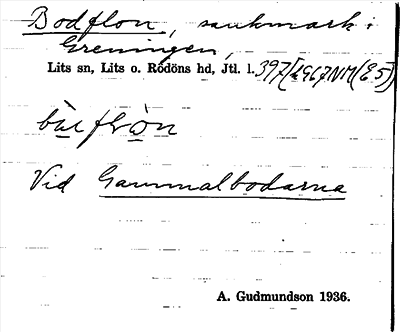 Bodflon, sankmark i
Greningen,
Lits sn, Lits o. Rödöns hd, Jtl. l. 397
Vid Gammalbodarna
A. Gudmundson 1936.